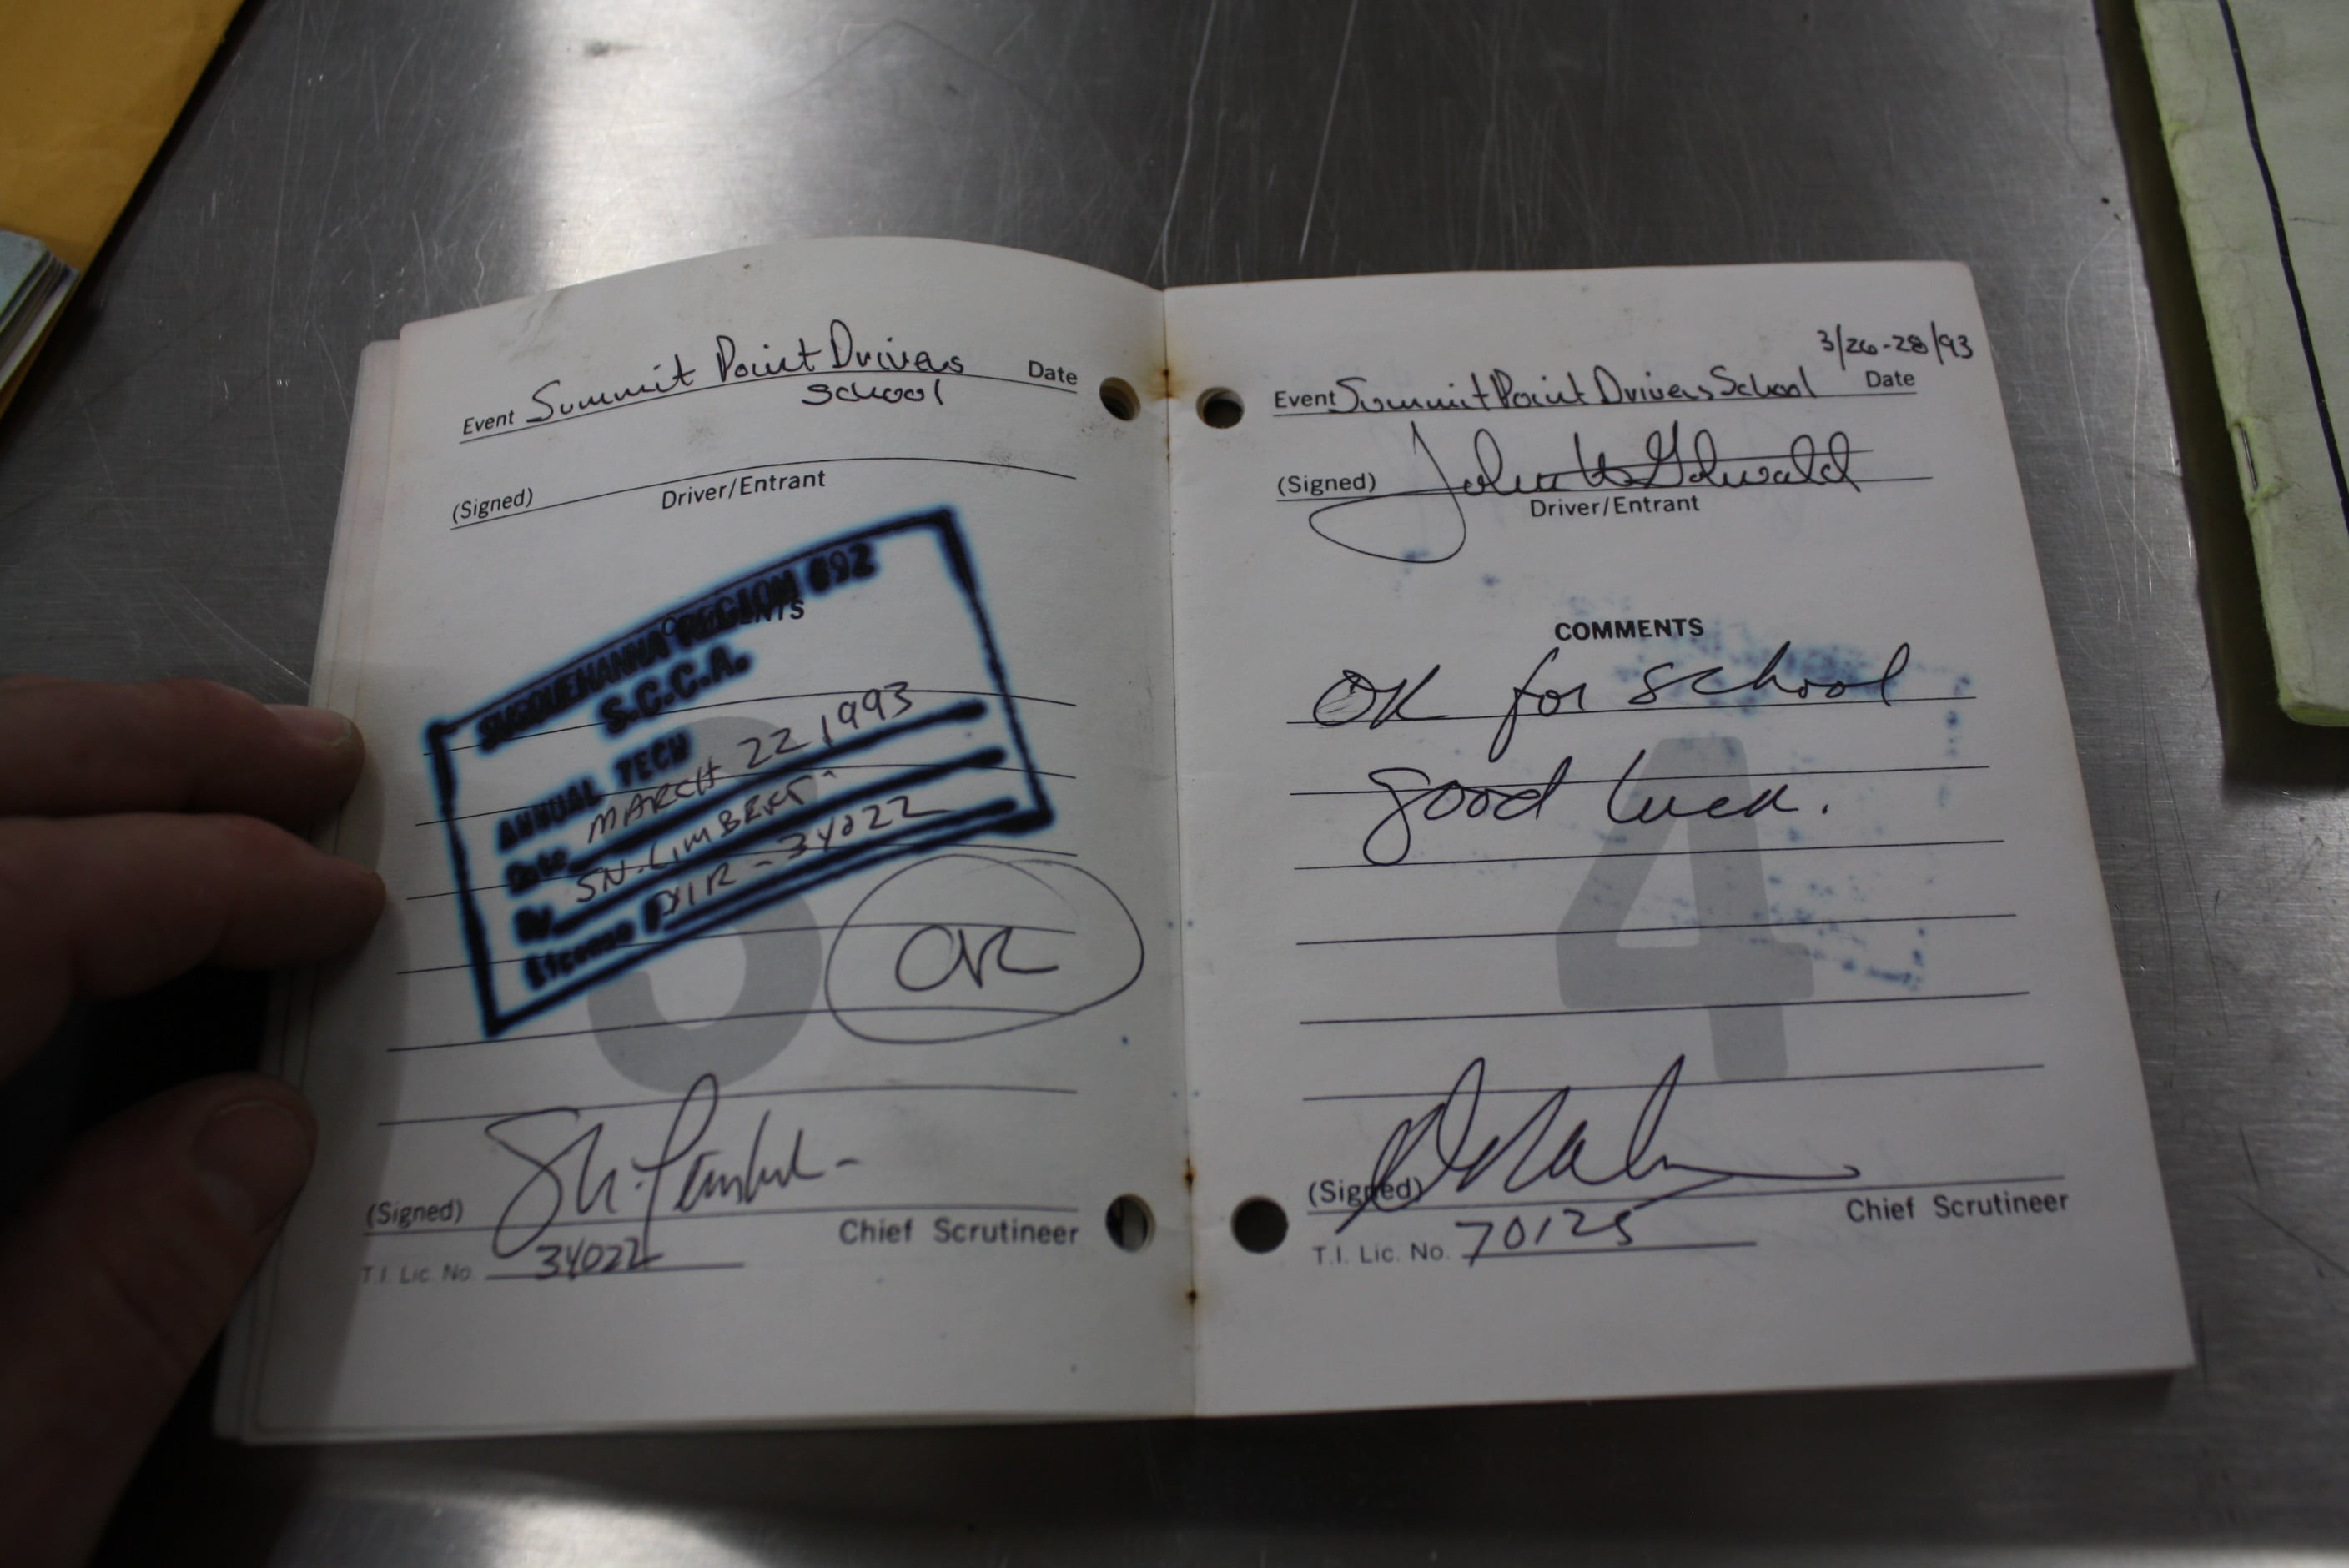 Event Summit Point Drivers Date
School
(Signed) Driver/Entrant
SUSQUEHANNA REGION #92
S.C.C.A.
ANNUAL TECH
Date MARCH 22, 1993
By S.N. LIMBERT
License # 34022
OK
(Signed) Chief Scrutineer
T.I. Lic. No 34022
3
3/26-28/93
Event Summit Point Drivers School Date
(Signed) John
Driver/Entrant
COMMENTS
OK for school
good luck.
4
(Signed) Chief Scrutineer
T.I. Lic. No. 70125